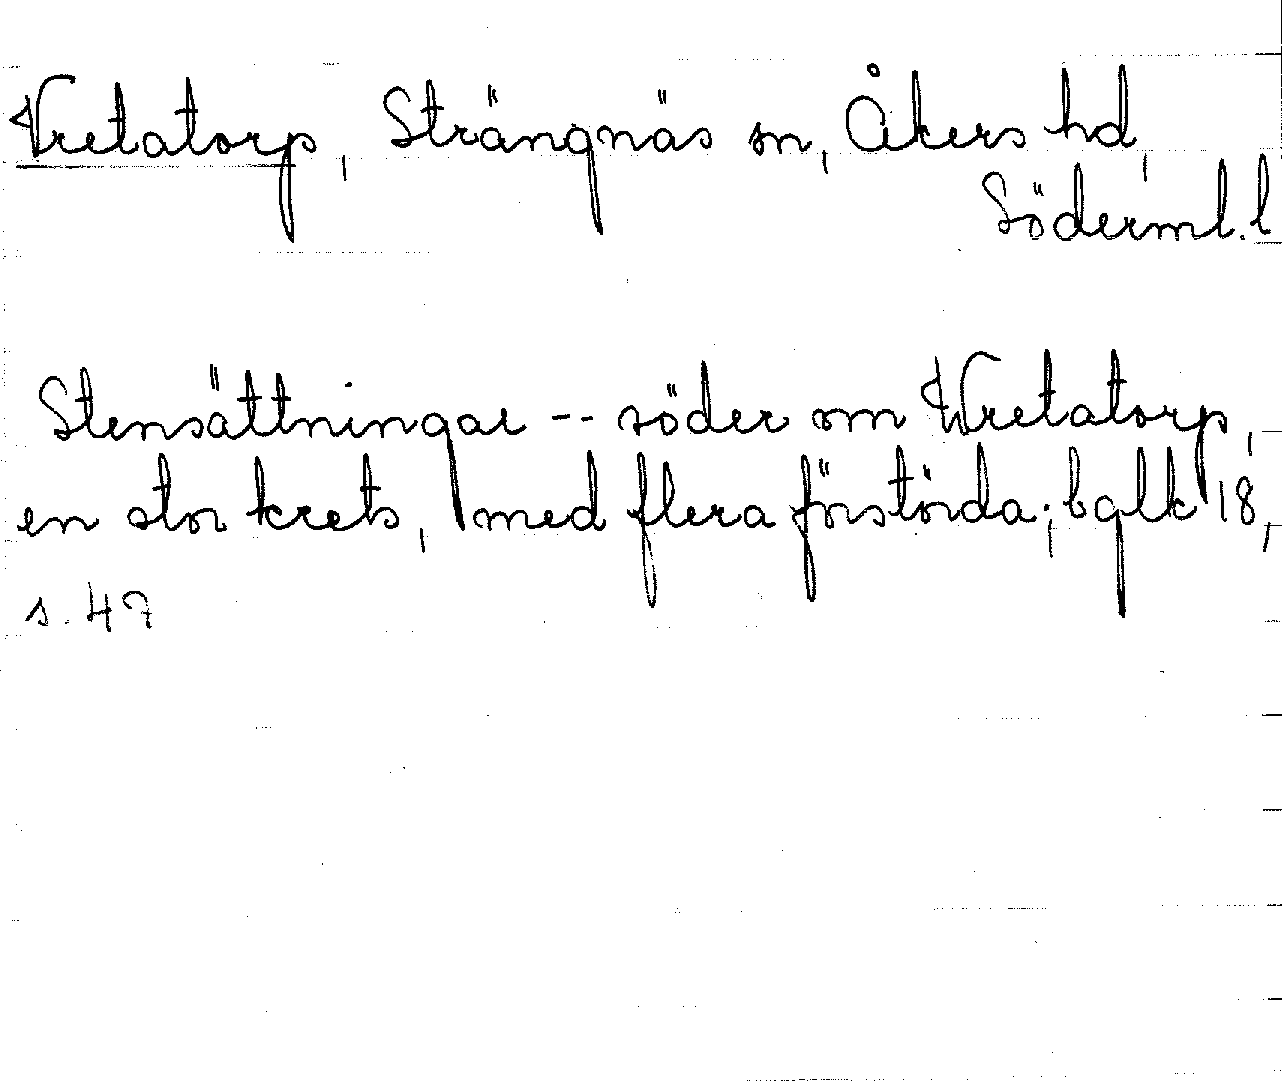 Vretatorp, Strängnäs sn, Åkers hd,
Söderml. l
Stensättningar -- söder om Wretatorp,
en stor krets, med flera förstörda; bglk 18,
s. 47